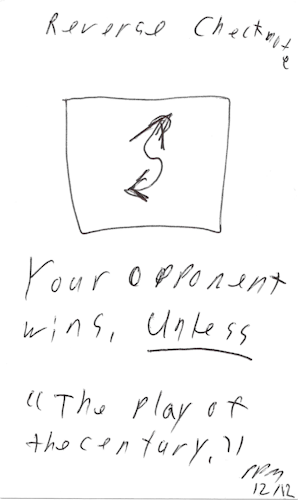 Reverse Checkmate
Your opponent
wins, Unless
"The play of
the century."
12/12